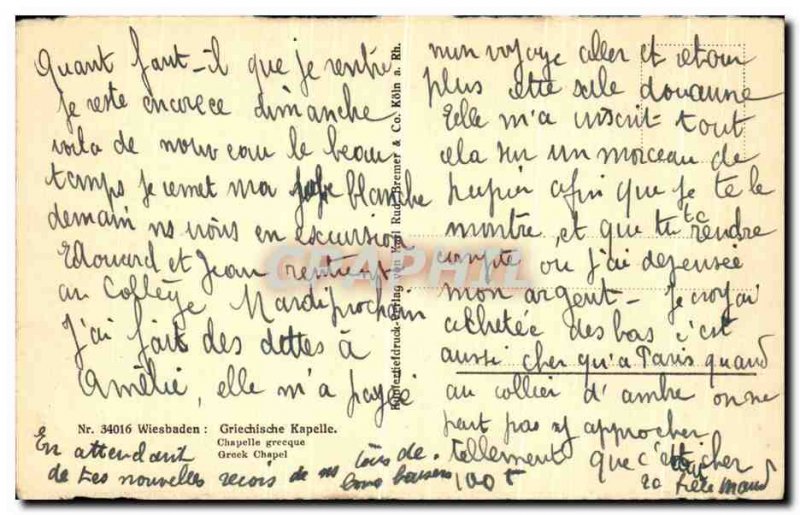 Quant faut-il que je rentre
Je reste encorece dimanche
voila de nouveau le beau
temps je remet ma jupe blanche
demain ns irons en excursion
Edouard et Jean rentrent
au Collège Mardi prochain
J'ai fait des dettes à
Amélie, elle m'a payée
mon voyage aller et retour
plus cette sale douanne
Elle m'a inscrit tout
cela sur un morceau de
papier afin que je te le
montre, et que tu te rendre
compte ou j'ai depensée
mon argent - je croyai
achetée des bas c'est
aussi cher qu'a Paris quand
au collier d'ambre on ne
peut pas s'y approcher
tellement que c'est cher
Nr. 34016 Wiesbaden: Griechische Kapelle.
Chapelle grecque
Greek Chapel
En attendant
de tes nouvelles recois de ns tous de
bons baisers
100 t
ta fille Maud
Kupfertiefdruck-Verlag von Karl Rud. Bremer & Co. Köln a. Rh.
GRAPHIL